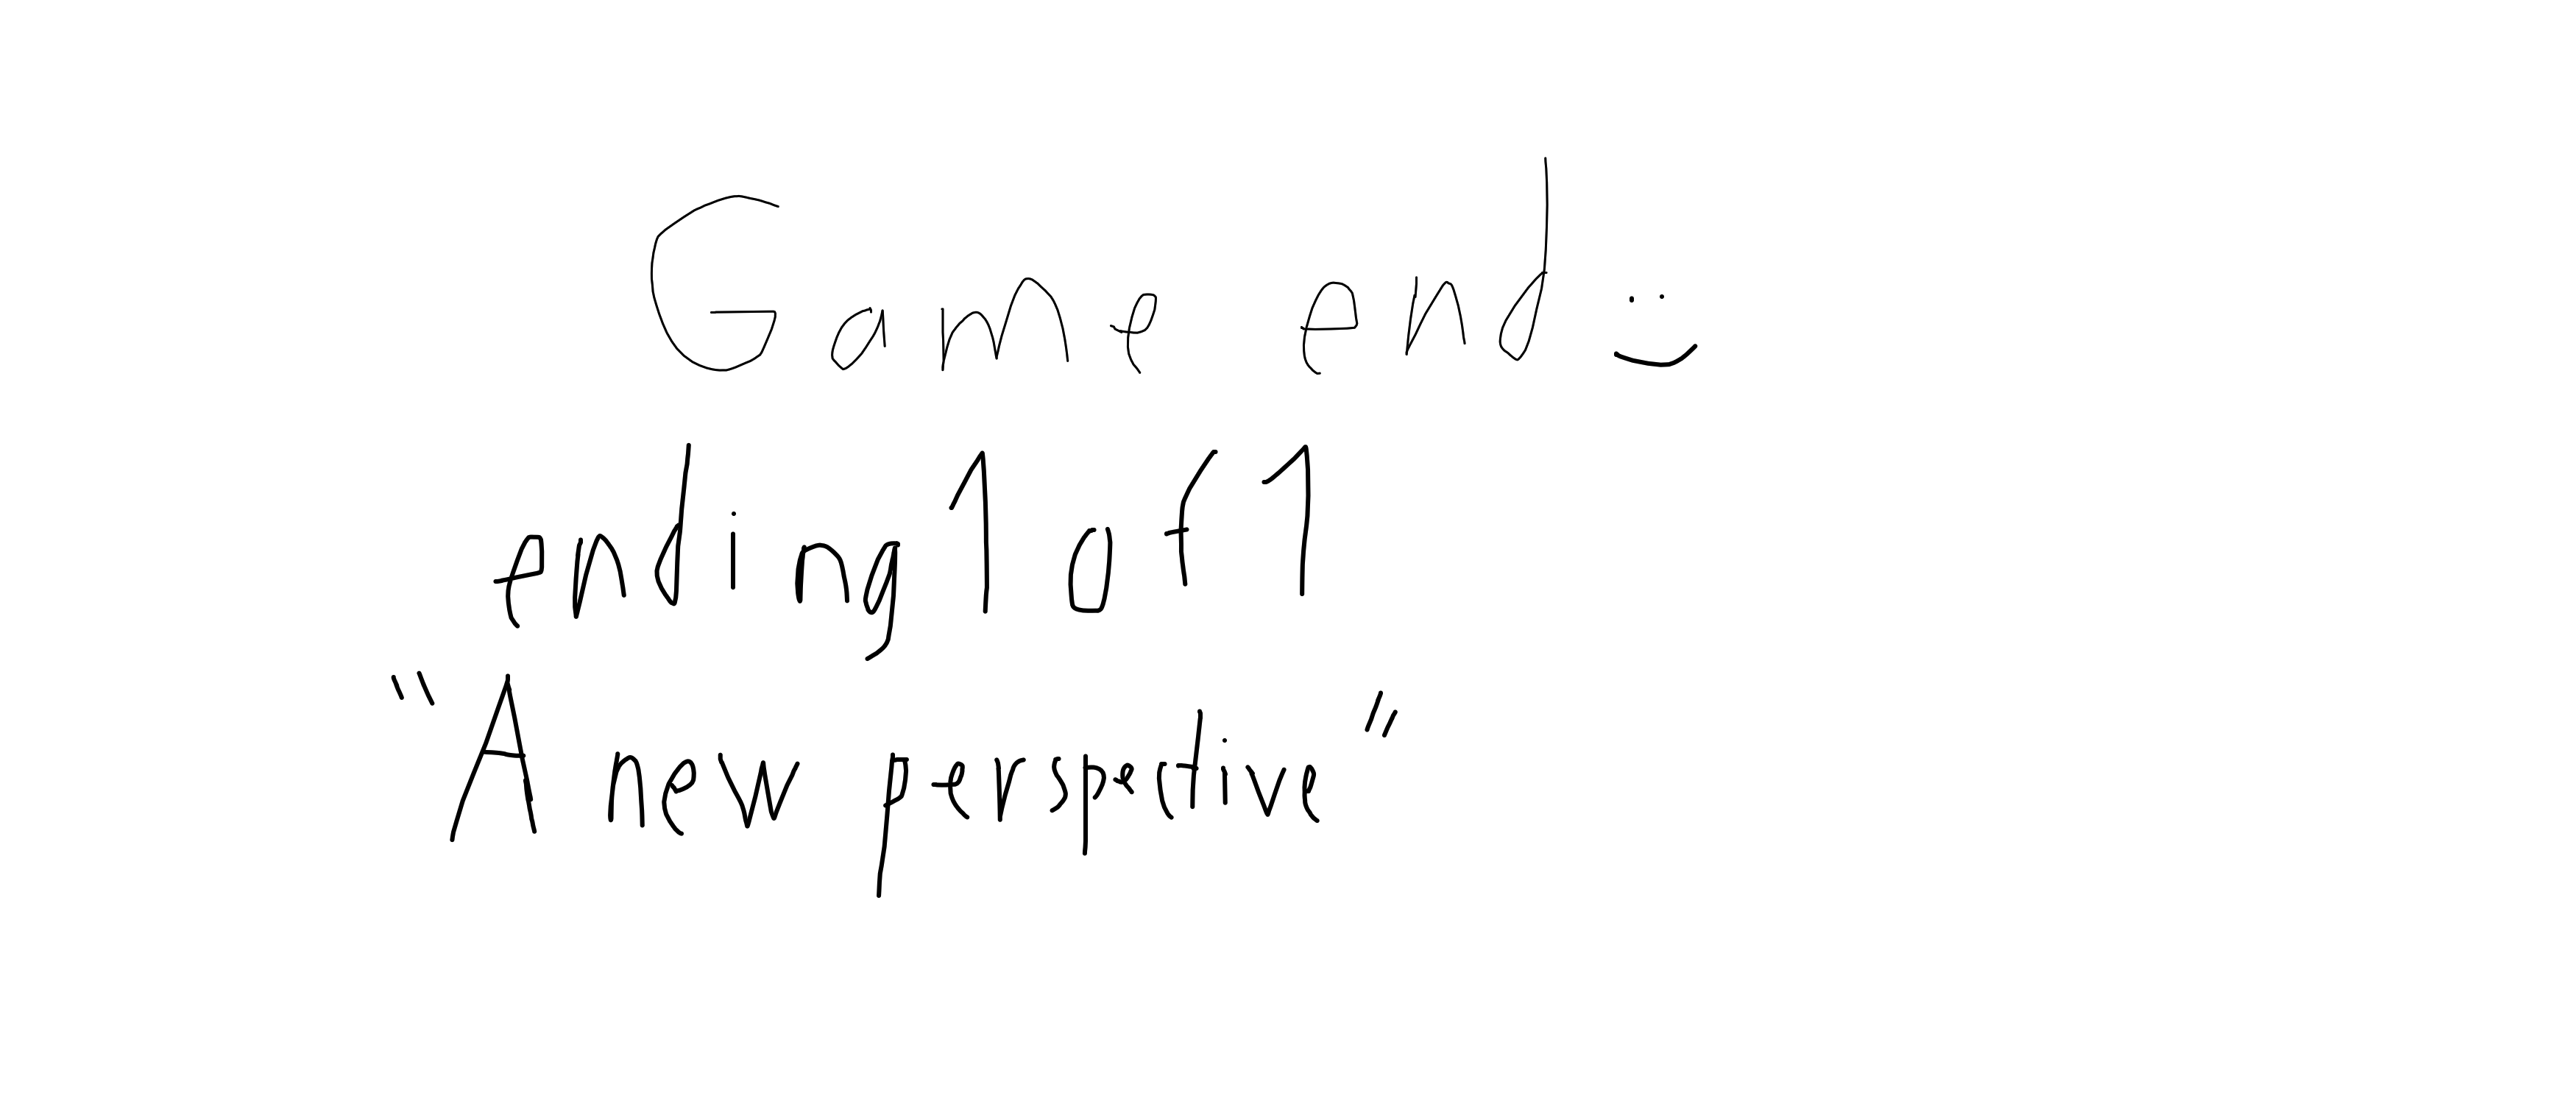 Game end
ending 1 of 1
"A new perspective"